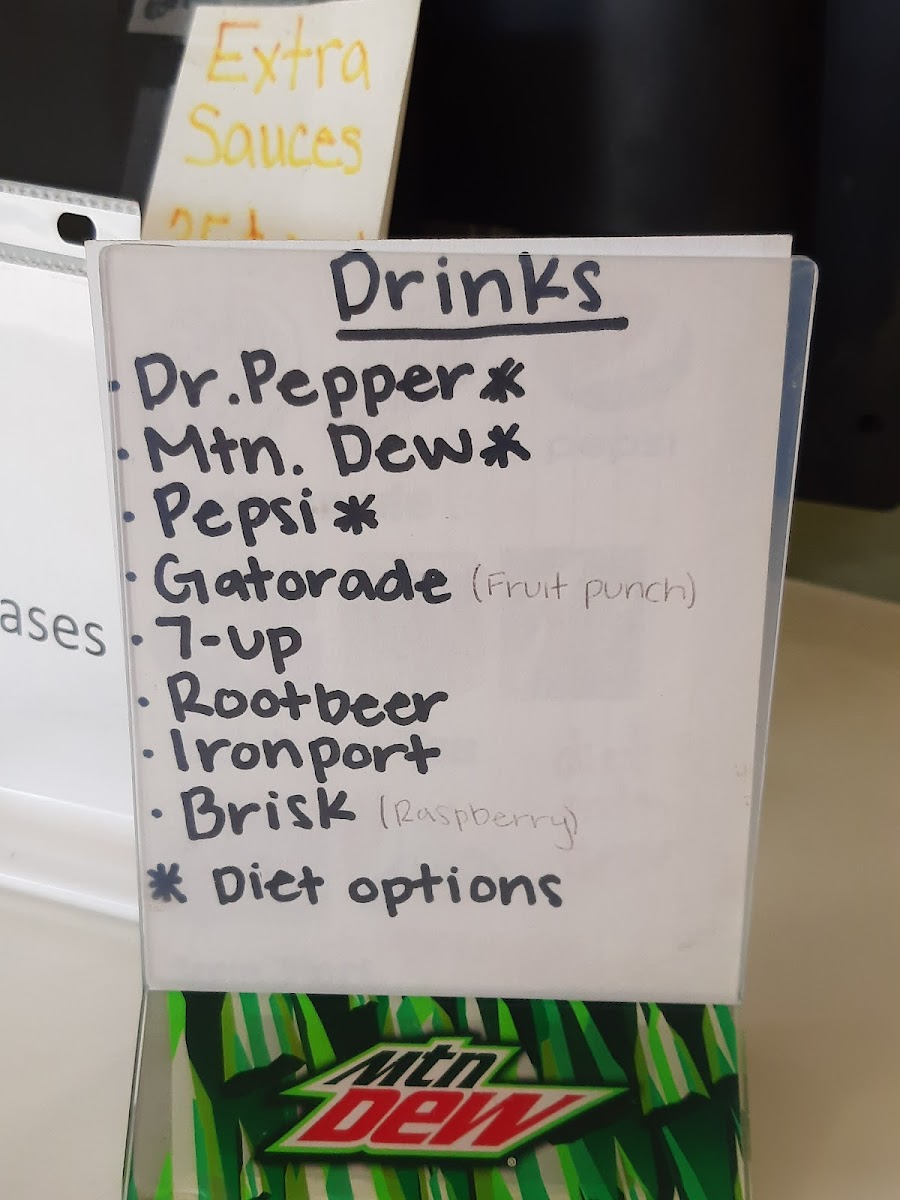 Extra
Sauces
Drinks
· Dr. Pepper *
· Mtn. Dew *
· Pepsi *
· Gatorade (Fruit punch)
· 7-up
· Rootbeer
· Ironport
· Brisk (Raspberry)
* Diet options
ases
Mtn
DEW